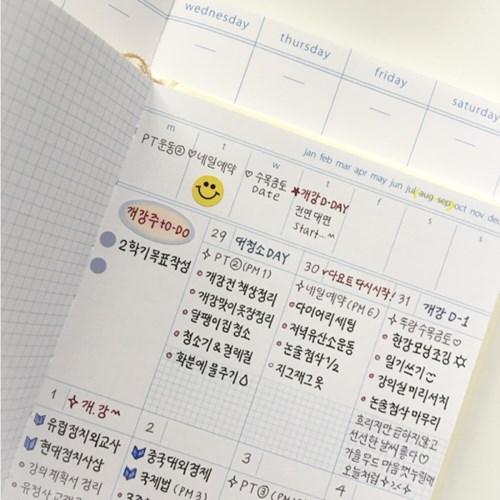 wednesday
thursday
friday
saturday
jan feb mar apr may jun jul aug sep oct nov dec
m
t
w
t
f
s
s
PT운동② ♡네일예약
♡ 수목금토
Date
★개강 D-DAY
전면대면
Start...~
개강주 to-DO
2학기 목표작성
29 대청소DAY
✧ PT②(PM 1)
개강전 책상정리
개강맞이옷장정리
달팽이집 청소
청소기 & 걸레질
화분에 물주기
30 ♥다요트 다시시작!
✧네일예약(PM 6)
다이어리세팅
저녁유산소운동
논술첨삭 1/2
지그재그 옷
31 개강 D-1
✧ 두랑 수목금토♡
한강모닝조깅 ☆
일기쓰기
강의실 미리서치
논술첨삭 마무리
흐리지만 급하지않고
선선한 날씨 좋다♡
1 ✧ 개.강~
유럽정치외교사
현대정치사상
강의계획서 정리
2
중국대외경제
국제법 (PM 3)
3
✧ PT③
4